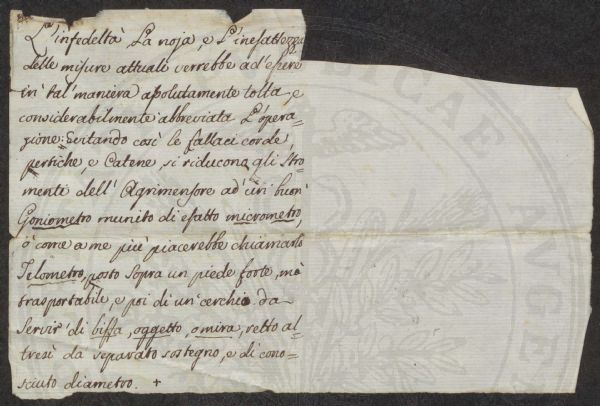 L'infedeltà La noja, e L'inesattezza
delle misure attuali verrebbe ad' essere
in' tal' maniera assolutamente tolta, e
considerabilmente abbreviata L'opera-
zione: Evitando così le fallaci corde,
pertiche, e Catene, si riducono gli Stro-
menti dell' Agrimensore ad' un' buon'
Goniometro munito di esatto micrometro,
ò come a me più piacerebbe chiamarlo
Telometro, posto sopra un piede forte, mà
trasportabile, e poi di un' cerchio da
Servir' di biffa, oggetto, o mira, retto al-
tresì da separato sostegno, e di cono-
sciuto diametro. +